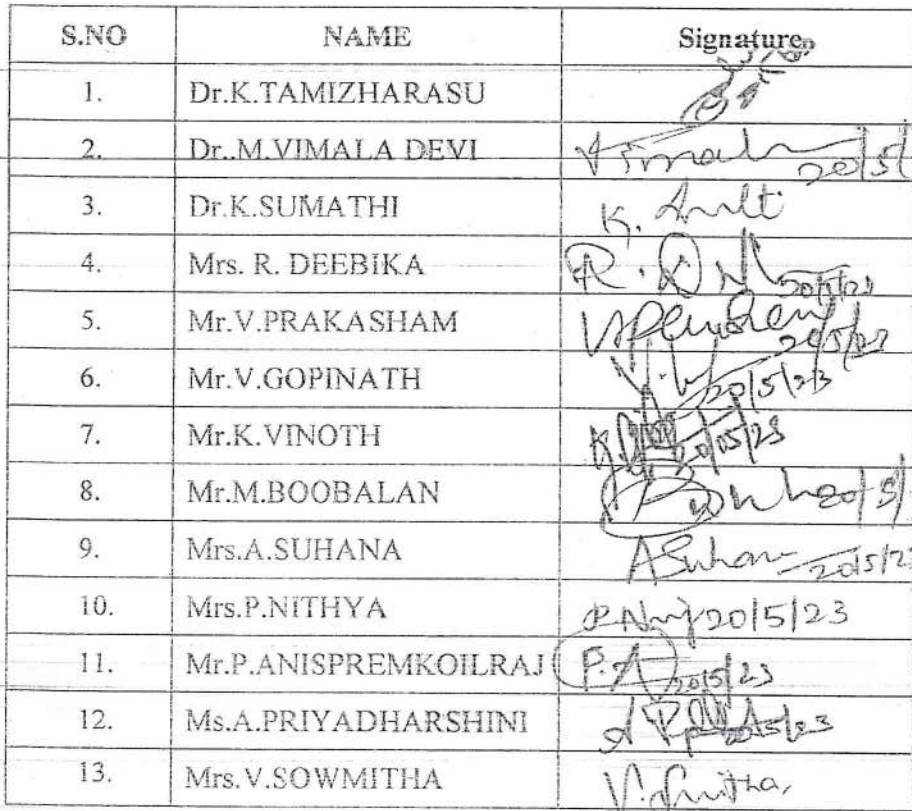 S.NO NAME Signature
1. Dr.K.TAMIZHARASU
2. Dr..M.VIMALA DEVI Vimala 20/5/
3. Dr.K.SUMATHI K.
4. Mrs. R. DEEBIKA R. D 20/5/23
5. Mr.V.PRAKASHAM 20/5/23
6. Mr.V.GOPINATH 20/5/23
7. Mr.K.VINOTH 20/05/23
8. Mr.M.BOOBALAN 20/5/
9. Mrs.A.SUHANA A Suhana 20/5/23
10. Mrs.P.NITHYA 20/5/23
11. Mr.P.ANISPREMKOILRAJ P.A 20/5/23
12. Ms.A.PRIYADHARSHINI
13. Mrs.V.SOWMITHA